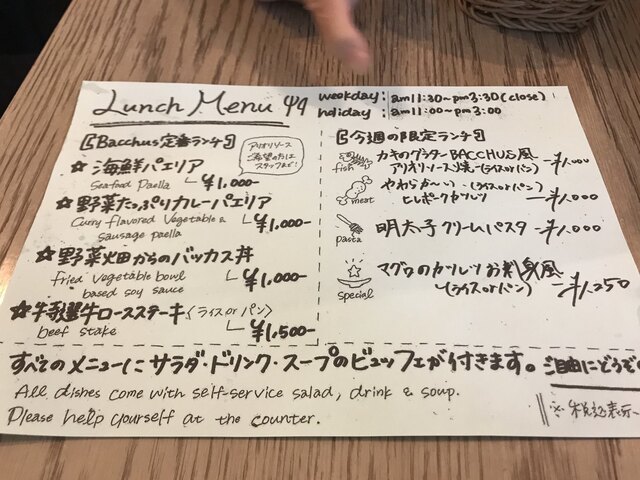 Lunch Menu
weekday: am11:30~pm3:30(close)
holiday: am11:00~pm3:00
【Bacchus定番ランチ】
アリオリソース
ご希望の方は
スタッフまで!
☆海鮮パエリア
Seafood Paella ¥1,000-
☆野菜たっぷりカレーパエリア
Curry flavored Vegetable & ¥1,000-
sausage paella
☆野菜畑からのバッカス丼
fried vegetable bowl ¥1,000-
based soy sauce
☆特選牛ロースステーキ〈ライスorパン〉
beef stake ¥1,500-
【今週の限定ランチ】
fish カキのグラタン BACCHUS風
アリオリソース焼 (ライスorパン) ¥1,000
meat やわらか〜い (ライスorパン)
ヒレポークカツレツ ¥1,000
pasta 明太子クリームパスタ ¥1,000
special マグロのカツレツお刺身風
(ライスorパン) ¥1,250
すべてのメニューにサラダ・ドリンク・スープのビュッフェが付きます。ご自由にどうぞ
All dishes come with self-service salad, drink & soup.
Please help yourself at the counter.
※税込表示